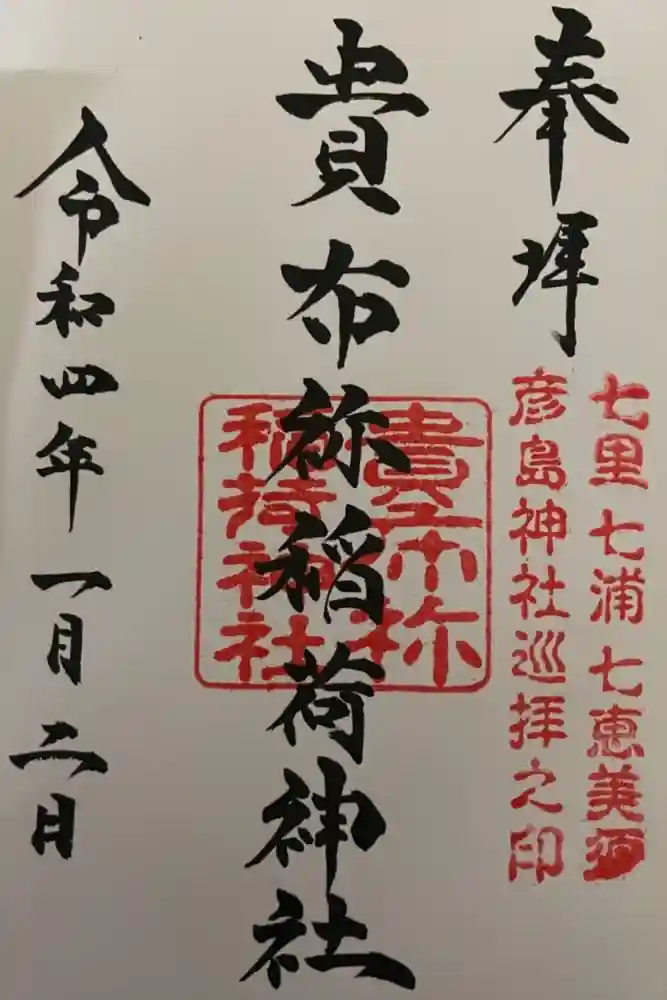 奉拝
七里七浦七恵美須
彦島神社巡拝之印
貴布祢稲荷神社
貴布祢
稲荷神社
令和四年一月二日